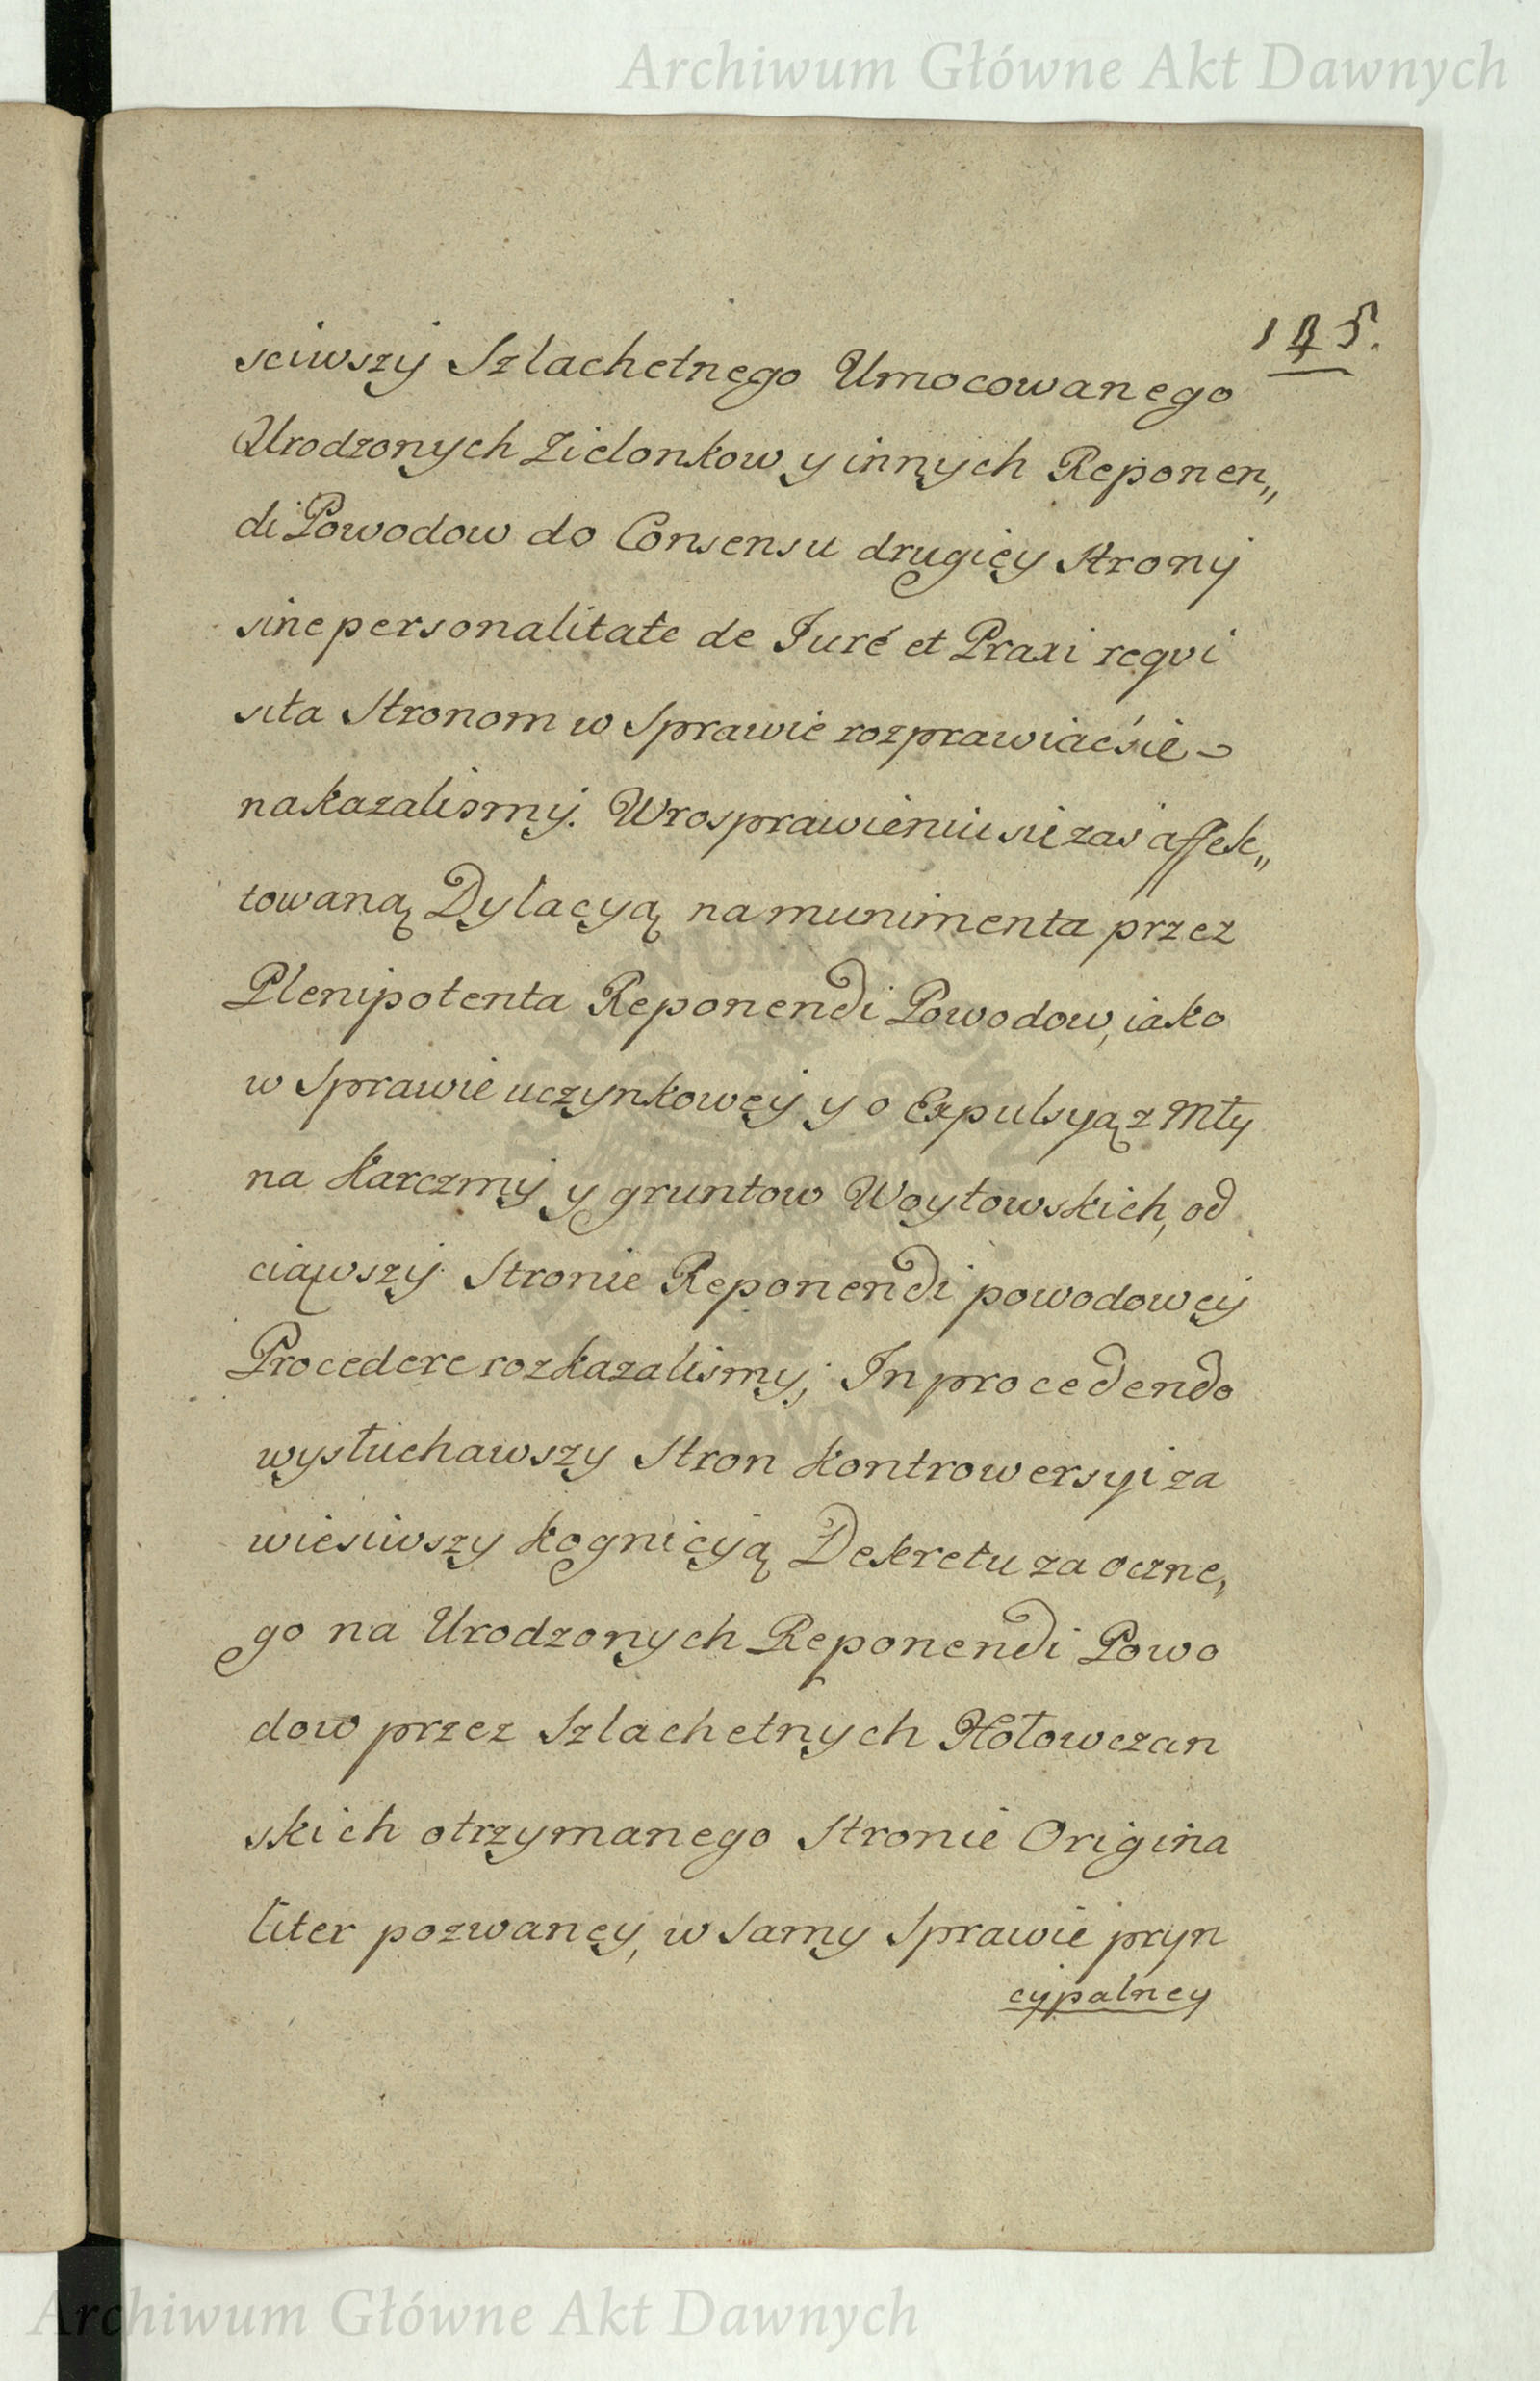 Archiwum Główne Akt Dawnych
145.
sciwszy Szlachetnego Umocowanego
Urodzonych Zielonkow y innych Reponen„
di Powodow do Consensu drugiey Strony
sine personalitate de Juré et Praxi reqvi
sita Stronom w Sprawie rozprawiać sie
nakazalismy. W rosprawieniu sie zas affek„
towaną Dylacyą na munimenta przez
Plenipotenta Reponendi Powodow, iako
w Sprawie uczynkowey y o Expulsyą z Mły
na Karczmy y gruntow Woytowskich, od
ciąwszy Stronie Reponendi powodowey
Procedere rozkazalismy; In procedendo
wysłuchawszy Stron kontrowersyi za
wiesiwszy kognicyą Dekretu zaoczne,
go na Urodzonych Reponendi Powo
dow przez Szlachetnych Hołowczan
skich otrzymanego Stronie Origina
liter pozwaney, w samy Sprawie pryn
cypalney
Archiwum Główne Akt Dawnych